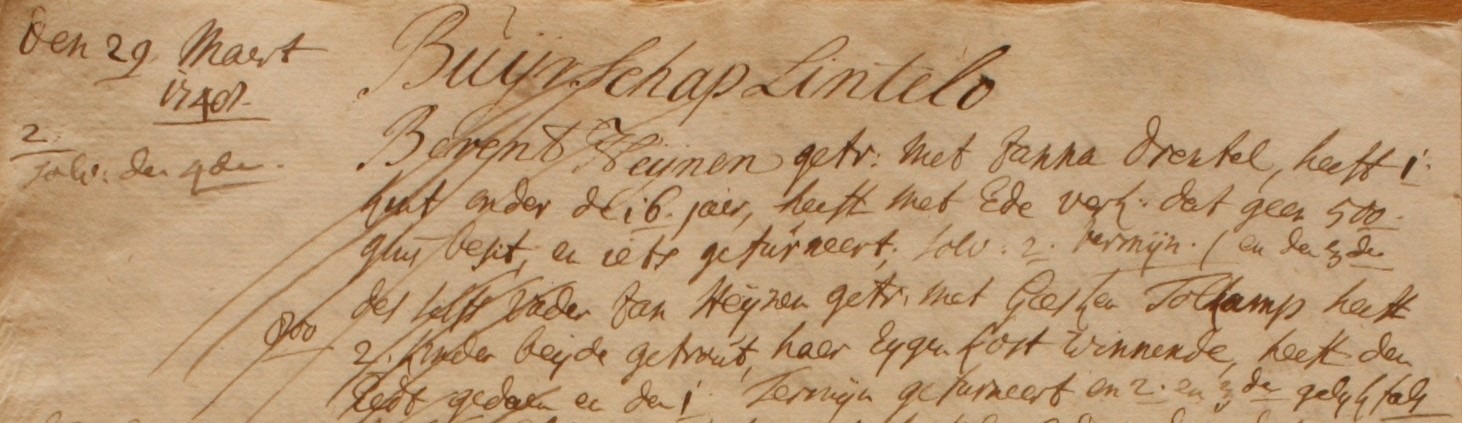 Den 29 Maert
1748.
2.
solv: den 4de.
Buijrschap Lintelo
Berent Heijnen getr: met Janna Drentel, heeft 1.
kint onder de 16. jaer, heeft met Ede verk: dat geen 500
guns besit, en iets gefurneert. solv: 2. Termijn. (en den 3de
des selfs vader Jan Heijnen getr: met Geesken Tolkamp heeft
800
2. kinder beijde getrout, haer Eygen kost winnende, heeft den
Eedt gedaen en den 1. Termijn gefurneert en 2. en 3de